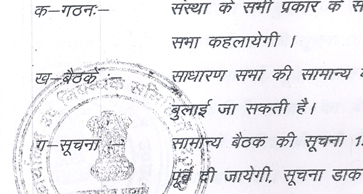 क–गठनः– संस्था के सभी प्रकार के
सभा कहलायेगी ।
ख–बैठकें :– साधारण सभा की सामान्य
बुलाई जा सकती है।
ग–सूचना :– सामान्य बैठक की सूचना
पूर्व दी जायेगी, सूचना डाक